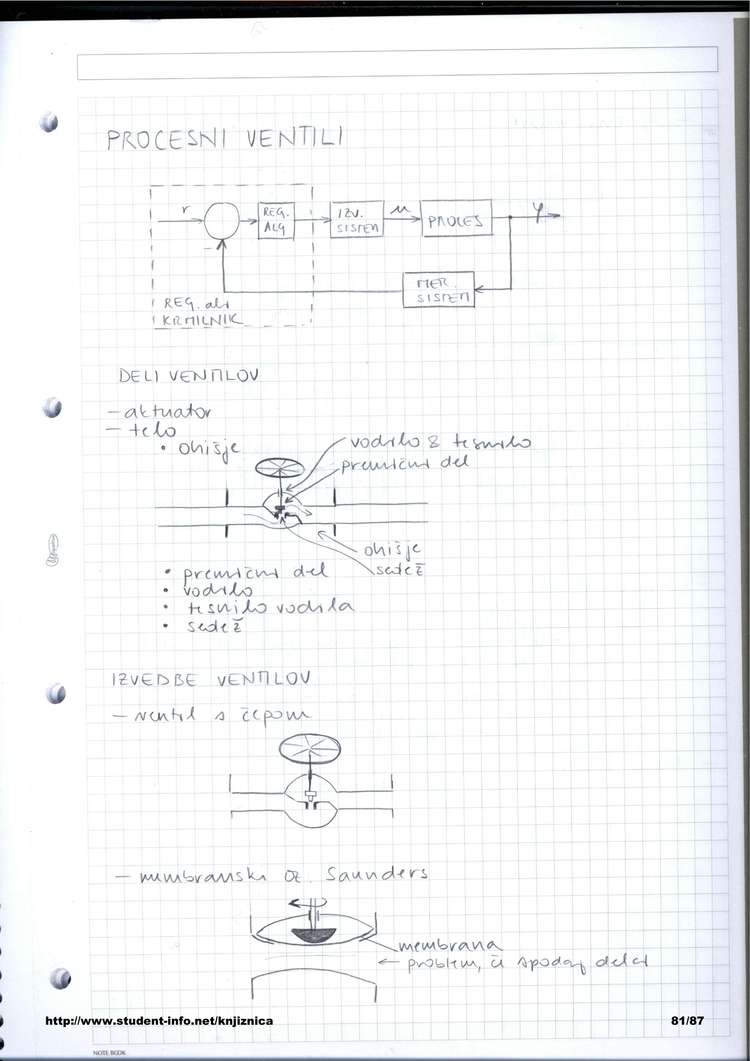 PROCESNI VENTILI
r
REG. ALG
IZV. SISTEM
u
PROCES
y
-
MER. SISTEM
REG. ali
KRMILNIK
DELI VENTILOV
- aktuator
- telo
• ohišje
vodilo & tesnilo
premični del
ohišje
sedež
• premični del
• vodilo
• tesnilo vodila
• sedež
IZVEDBE VENTILOV
- ventil s čepom
- membranski oz. Saunders
membrana
← problem, če spodaj delci
http://www.student-info.net/knjiznica
81/87
NOTE BOOK